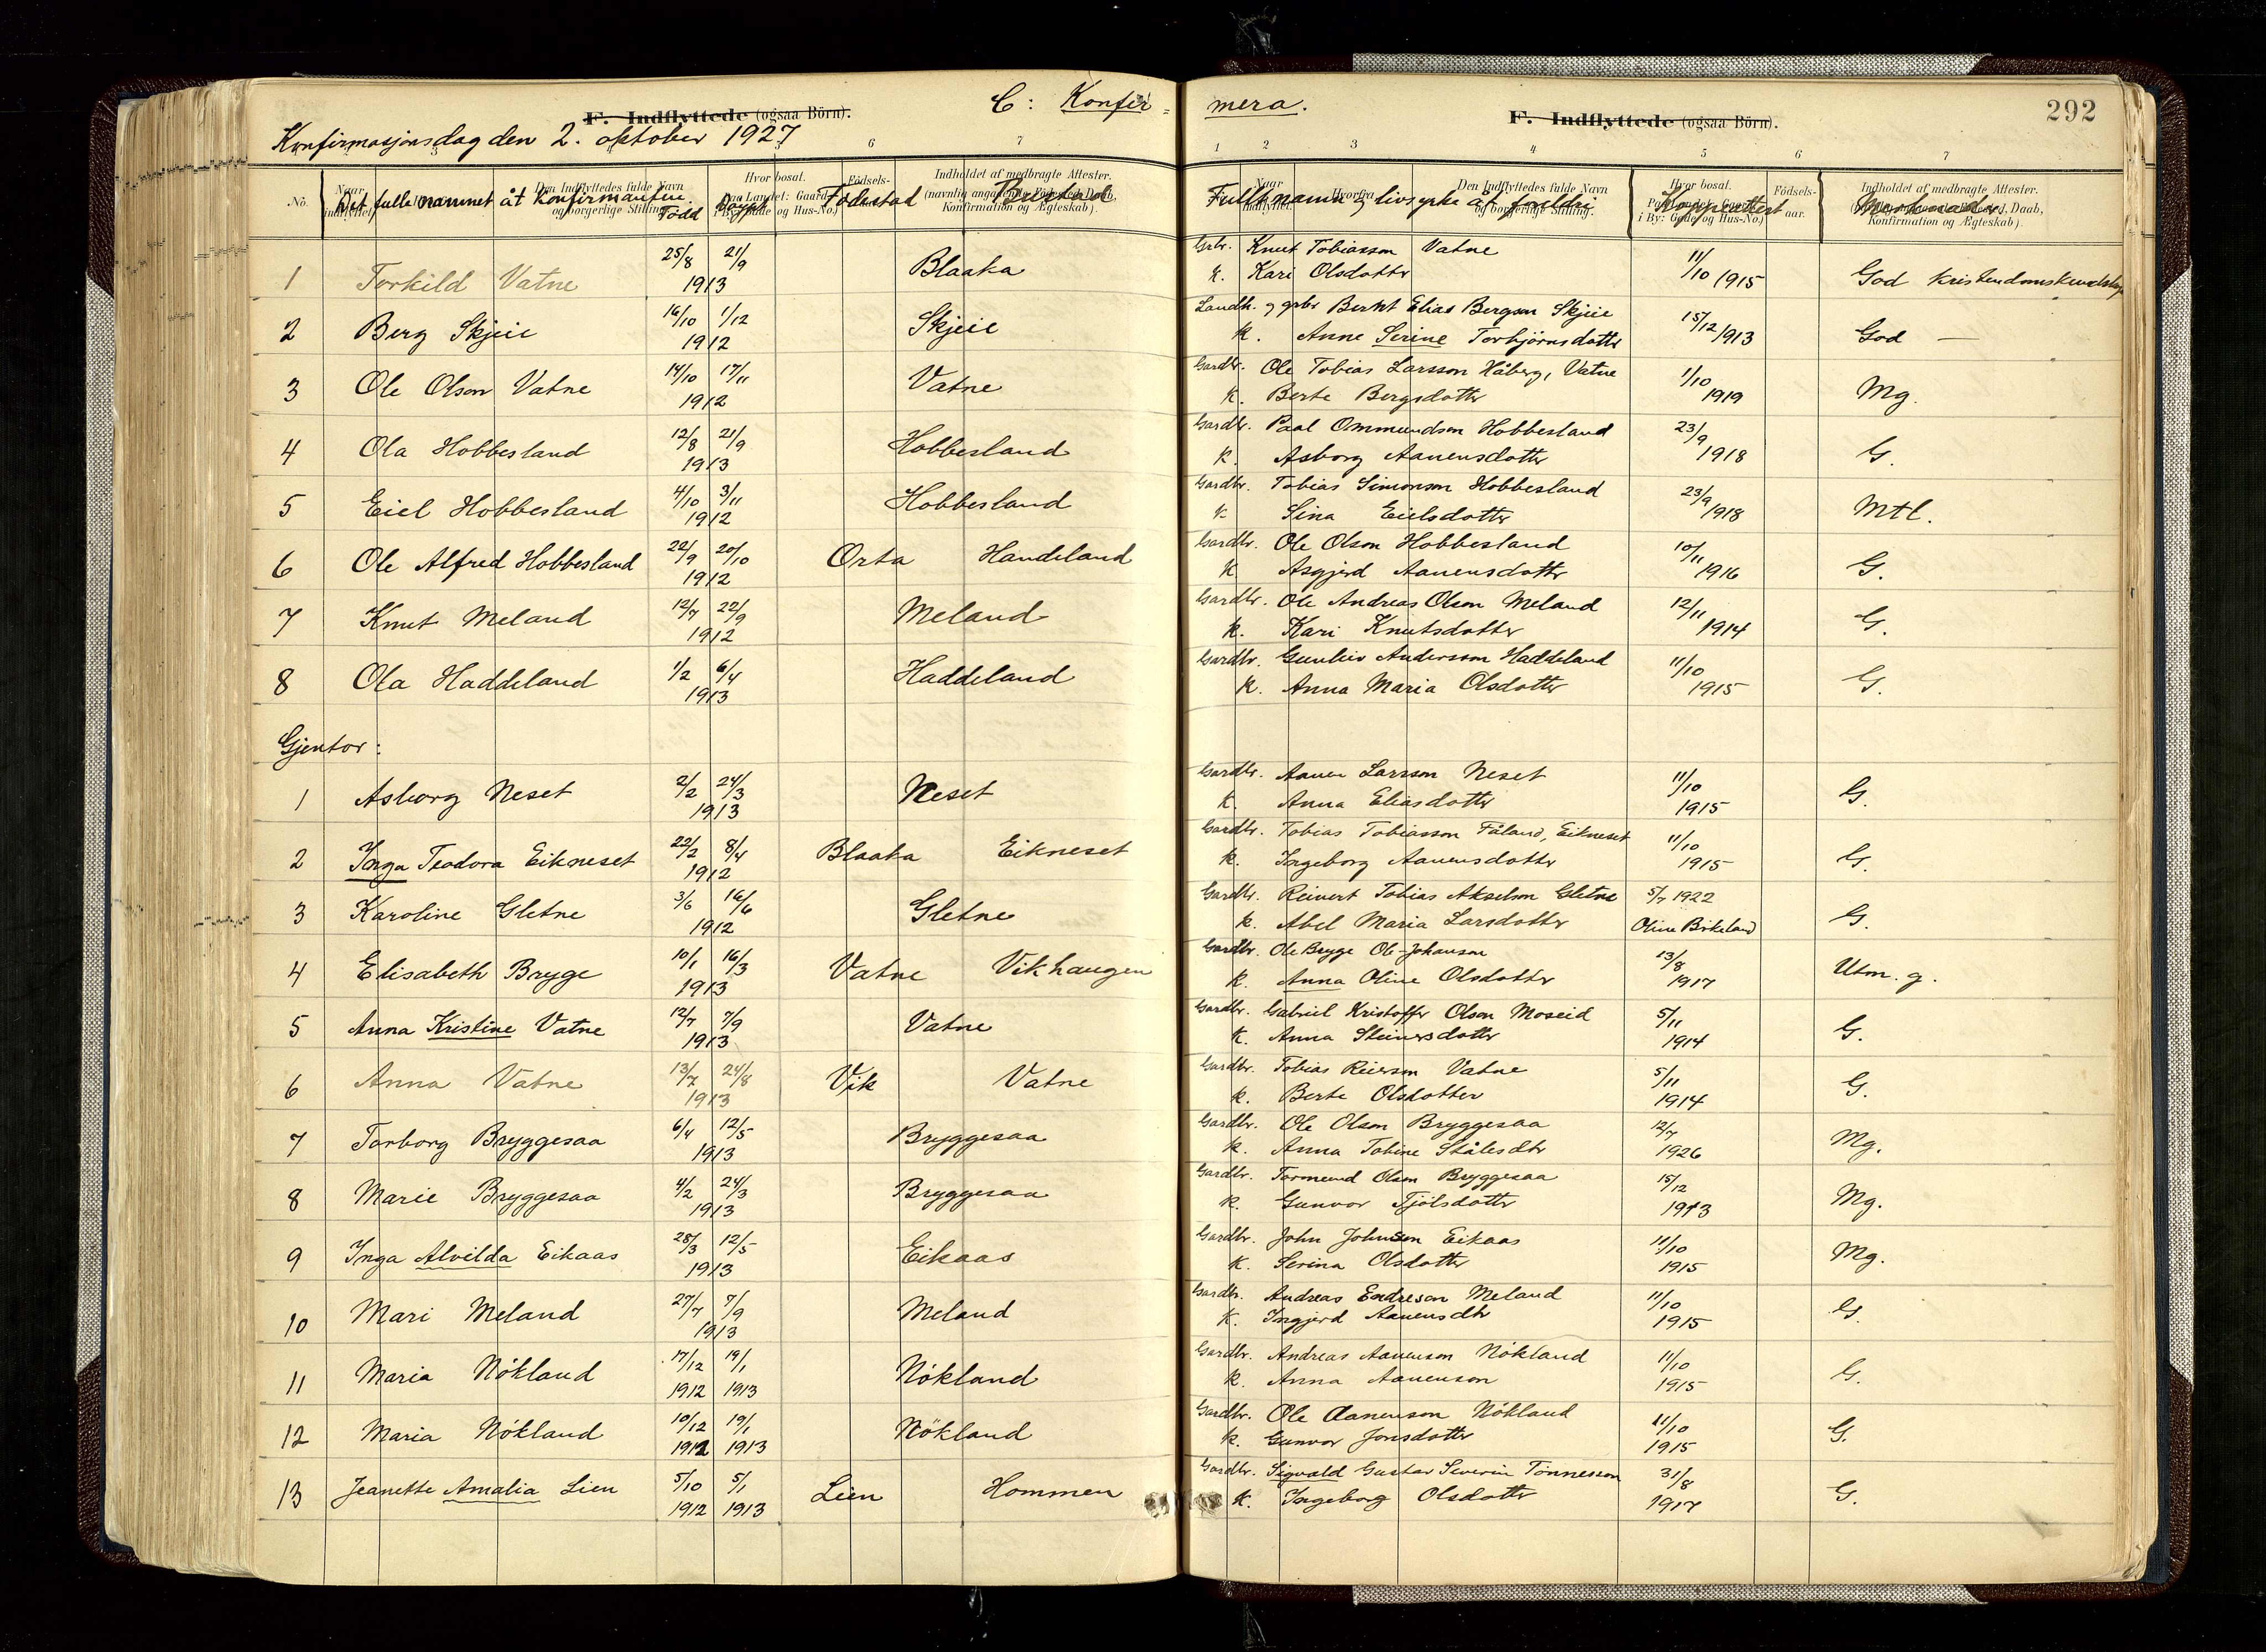 C: Konfir=
mera.
292
F. Indflyttede (ogsaa Börn).
F. Indflyttede (ogsaa Börn).
Konfirmasjonsdag den 2. oktober 1927
6 7
1 2 3 4 5 6 7
No. Det fulle namnet åt konfirmanten. Född Döypt Födestad Bustad
Fullt namn og livsyrke åt foreldri Koppeattest Merknader
Den Indflyttedes fulde Navn og borgerlige Stilling.
Hvor bosat. Paa Landet: Gaard i By: Gade og Hus-No.)
Födsels-aar.
Indholdet af medbragte Attester. (navnlig angaaende Födested, Daab, Konfirmation og Ægteskab).
1 Torkild Vatne 25/8 21/9 1913 Blaaka Grbr. Knut Tobiasson Vatne 11/10 1915 God kristendomskundskap
k. Kari Olsdotter
2 Berg Skjeie 16/10 1/12 1912 Skjeie Landh. og grbr Berhot Elias Bergson Skjeie 15/12 1913 God —
k. Anne Serine Torbjörnsdotter
3 Ole Olson Vatne 14/10 17/11 1912 Vatne Gardbr. Ole Tobias Larsson Håberg, Vatne 1/10 1919 Mg.
k. Berte Bergsdotter
4 Ola Hobbesland 12/8 21/9 1913 Hobbesland Gardbr. Paal Ommundson Hobbesland 23/9 1918 G.
k. Asborg Aanensdotter
5 Eiel Hobbesland 4/10 3/11 1912 Hobbesland Gardbr. Tobias Simonson Hobbesland 23/9 1918 Mtl.
k. Sina Eielsdotter
6 Ole Alfred Hobbesland 22/9 20/10 1912 Orta Handeland Gardbr. Ole Olson Hobbesland 10/11 1916 G.
k. Asgjerd Aanensdotter
7 Knut Meland 12/7 22/9 1912 Meland Gardbr. Ole Andreas Olson Meland 12/11 1914 G.
k. Kari Knutsdotter
8 Ola Haddeland 1/2 6/4 1913 Haddeland Gardbr. Gunleiv Andersson Haddeland 11/10 1915 G.
k. Anna Maria Olsdotter
Gjentor:
1 Asborg Neset 2/2 24/3 1913 Neset Gardbr. Aanen Larsson Neset 11/10 1915 G.
k. Anna Eliasdotter
2 Inga Teodora Eikneset 22/2 8/4 1912 Blaaka Eikneset Gardbr. Tobias Tobiasson Faland, Eikneset 11/10 1915 G.
k. Ingeborg Aanensdotter
3 Karoline Gletne 3/6 16/6 1912 Gletne Gardbr. Reinert Tobias Akselson Gletne 5/7 1922 G.
k. Abel Maria Larsdotter Oline Birkeland
4 Elisabeth Bryge 10/1 16/3 1913 Vatne Vikhaugen Gardbr. Ole Bryge Ole Johanson 13/8 1917 Utm. g.
k. Anna Oline Olsdotter
5 Anna Kristine Vatne 12/7 7/9 1913 Vatne Gardbr. Gabriel Kristoffer Olson Moseid 5/11 1914 G.
k. Anna Steinersdotter
6 Anna Vatne 13/7 24/8 1913 Vik Vatne Gardbr. Tobias Reierson Vatne 5/11 1914 G.
k. Berte Olsdotter
7 Torborg Bryggesaa 6/4 12/5 1913 Bryggesaa Gardbr. Ole Olson Bryggesaa 12/7 1926 Mg.
k. Anna Tobine Stålesdtr
8 Marie Bryggesaa 4/2 24/3 1913 Bryggesaa Gardbr. Tormund Olson Bryggesaa 15/12 1913 Mg.
k. Gunvor Tjölsdotter
9 Inga Alvilda Eikaas 28/3 12/5 1913 Eikaas Gardbr. John Johnsen Eikaas 11/10 1915 Mg.
k. Serina Olsdotter
10 Mari Meland 27/7 7/9 1913 Meland Gardbr. Andreas Endreson Meland 11/10 1915 G.
k. Ingjerd Aanensdtr
11 Maria Nökland 17/12 1912 19/1 1913 Nökland Gardbr. Andreas Aanenson Nökland 11/10 1915 G.
k. Anna Aanenson
12 Maria Nökland 10/12 1912 19/1 1913 Nökland Gardbr. Ole Aanenson Nökland 11/10 1915 G.
k. Gunvor Jonsdotter
13 Jeanette Amalia Lien 5/10 1912 5/1 1913 Lien Hommen Gardbr. Sigvald Gustav Severin Tönnesson 31/8 1917 G.
k. Ingeborg Olsdotter